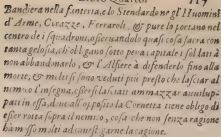 Bandiera nella fanteria, di Stendardo ne gl'Huomini
d'Arme, Corazze, Ferraroli, & pure lo portano nel
centro de i squadroni, osservando la quasi cosa sacra con
tanta gelosia, ch'obligano sotto pena capitale i soldati à
non abbandonarlo, & l'Alfiere à difenderlo fino alla
morte, & molti si sono veduti più presto che lasciar à
nemico l'insegna, essersi lasciati ammazzar avvilup-
pati in essa, due altri, poiche la Cornetta tiene obligo di
esser rotta sopra il nemico, cosa che non senza ragione
hà mosso molti ad investigarne la cagione.